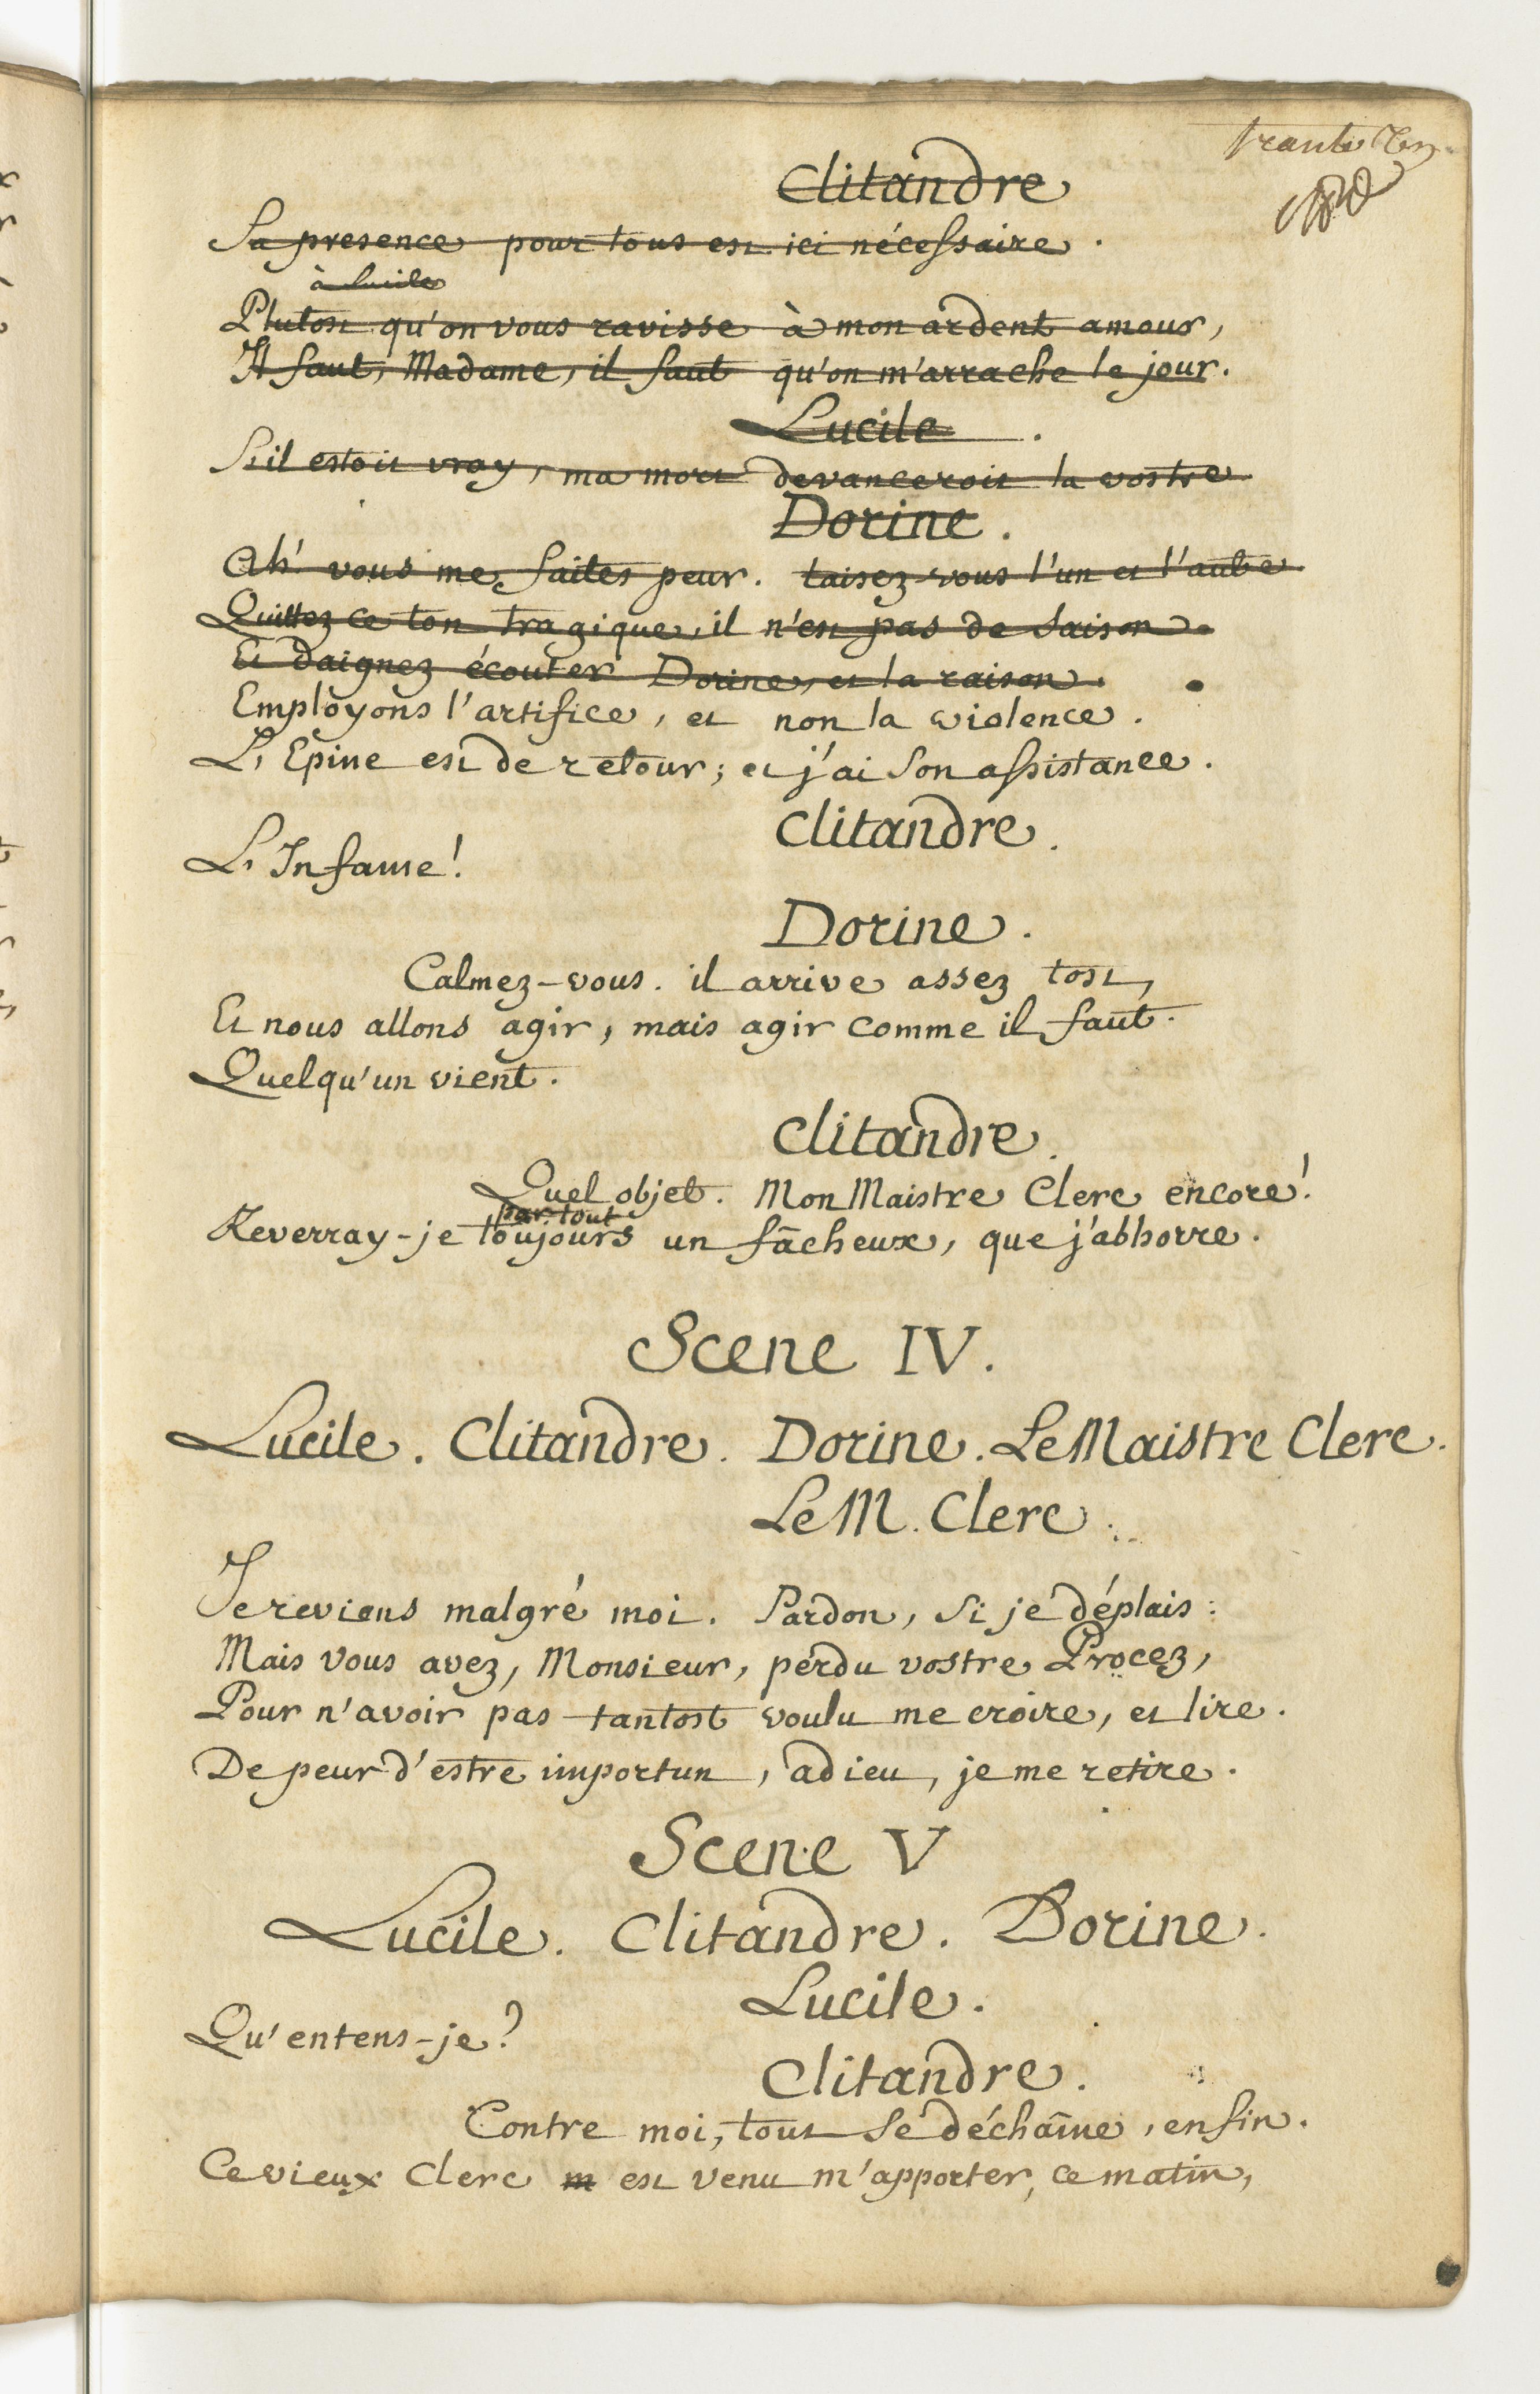 trante
Clitandre
Sa presence pour tous est ici nécessaire.
à Lucile
Plutost qu'on vous ravisse à mon ardent amour,
Il faut, Madame, il faut qu'on m'arrache le jour.
Lucile.
S'il estoit vray, ma mort devanceroit la vostre
Dorine.
Ah! vous me faites peur. taisez-vous l'un et l'autre
Quittez ce ton tragique, il n'est pas de saison.
Et daignez écouter Dorine, et la raison.
Employons l'artifice, et non la violence.
L'Epine est de retour; et j'ai son assistance.
Clitandre.
L'Infame!
Dorine.
Calmez-vous. il arrive assez tost,
Et nous allons agir, mais agir comme il faut.
Quelqu'un vient.
Clitandre.
Quel objet. Mon Maistre Clerc encore!
par tout
Reverray-je toujours un fâcheux, que j'abhorre.
Scene IV.
Lucile. Clitandre. Dorine. Le Maistre Clerc.
Le M. Clerc.
Je reviens malgré moi. Pardon, si je déplais:
Mais vous avez, Monsieur, perdu vostre Procez,
Pour n'avoir pas tantost voulu me croire, et lire.
De peur d'estre importun, adieu, je me retire.
Scene V
Lucile. Clitandre. Dorine.
Lucile.
Qu'entens-je?
Clitandre.
Contre moi, tout se déchaîne, enfin.
Ce vieux Clerc m est venu m'apporter, ce matin,